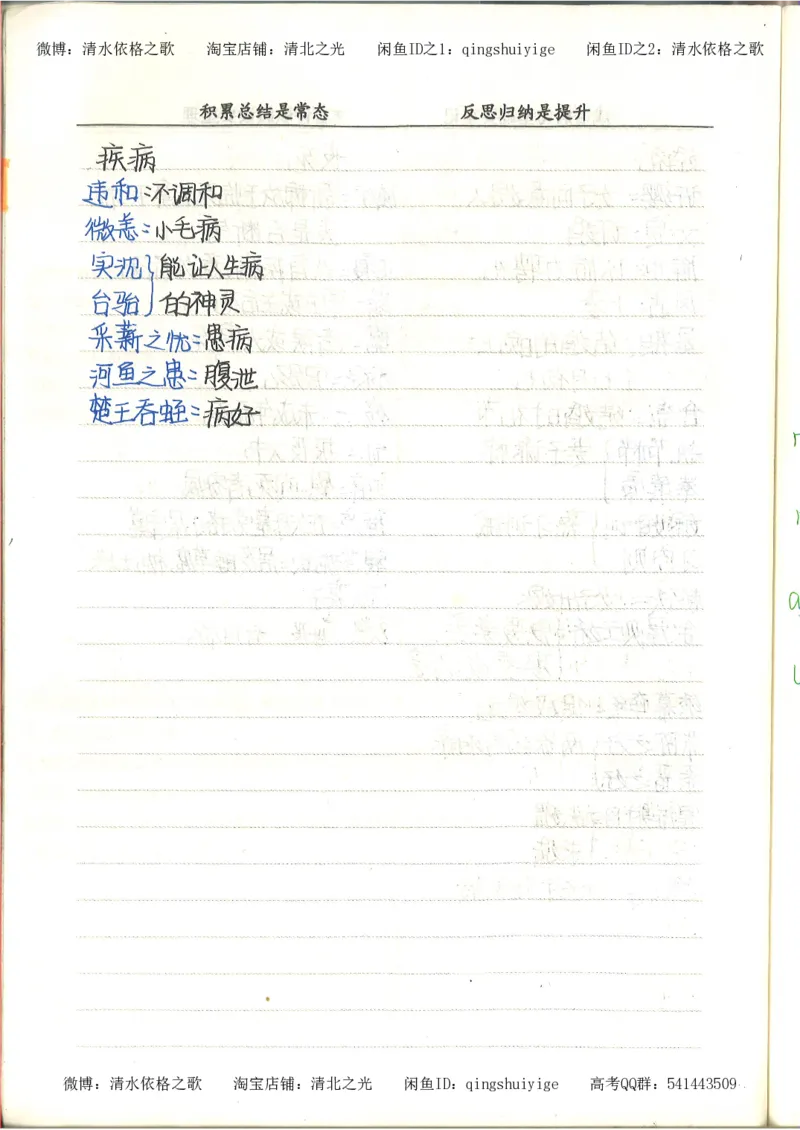 微博：清水依格之歌 淘宝店铺：清北之光 闲鱼ID之1：qingshuiyige 闲鱼ID之2：清水依格之歌
积累总结是常态 反思归纳是提升
疾病
违和：不调和
微恙：小毛病
实沈}能让人生病
台骀}的神灵
采薪之忧：患病
河鱼之患：腹泄
楚王吞蛭：病好
微博：清水依格之歌 淘宝店铺：清北之光 闲鱼ID：qingshuiyige 高考QQ群：541443509